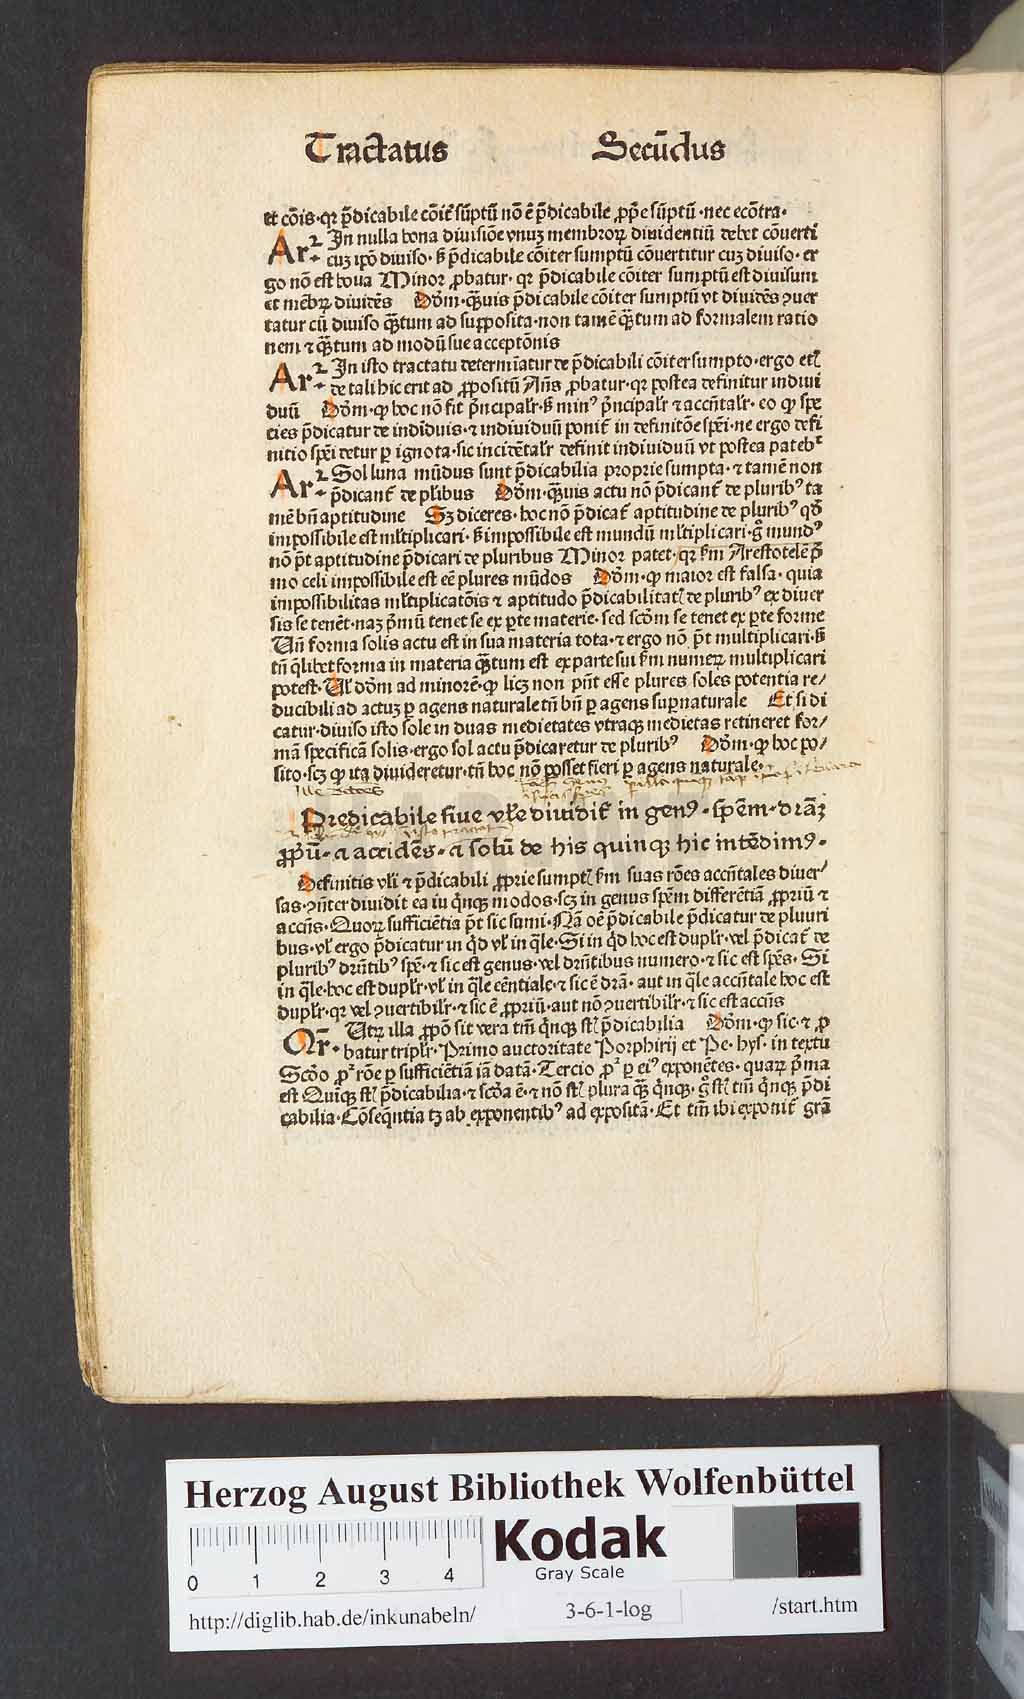 Tractatus Secūdus
et cōis·qꝛ p̄dicabile cōit̄ sūptū nō ē p̄dicabile ꝓpꝛe sūptū·nec ecōtra·
Arꝛ· In nulla bona diuisiōe vnuꝫ membroꝝ diuidentiū debet cōuerti
cuꝫ ip̄o diuiso·ß p̄dicabile cōiter sumptū cōuertitur cuꝫ diuiso·er
go nō est bona Minor ꝓbatur·qꝛ p̄dicabile cōiter sumptū est diuisum
et mēbꝝ diuidēs Dōm·qꝙuis p̄dicabile cōiter sumptū vt diuidēs ꝯuer
tatur cū diuiso qꝙtum ad supposita·non tamē qꝙtum ad formalem ratio
nem ⁊ qꝙtum ad modū sue acceptōnis
Arꝛ· In isto tractatu determīatur de p̄dicabili cōiter sumpto·ergo etꝭ
de tali hic erit ad ꝓpositū An̄s ꝓbatur·qꝛ postea definitur indiui
duū Dōm·ꝙ hoc nō fit p̄ncipalꝛ·ß minꝰ p̄ncipalꝛ ⁊ accn̄talꝛ·eo ꝙ spe
cies p̄dicatur de indiuiduis·⁊ indiuiduū ponit̄ in definitōe spēi·ne ergo defi
nitio spēi detur ꝑ ignota·sic incidētalꝛ definit indiuiduū vt postea patebᵗ
Arꝛ· Sol luna mūdus sunt p̄dicabilia proprie sumpta·⁊ tamē non
p̄dicant̄ de plꝛibus Dōm·qꝙuis actu nō p̄dicant̄ de pluribꝰ ta
mē bn̄ aptitudine Sꝫ diceres·hoc nō p̄dicat̄ aptitudine de pluribꝰ qd̄
impossibile est ml̄tiplicari·ß impossibile est mundū ml̄tiplicari·g̊ mundꝰ
nō p̄t aptitudine p̄dicari de pluribus Minor patet·qꝛ ẜm Arestotelē p̄
mo celi impossibile est eē plures mūdos Dōm·ꝙ maior est falsa·quia
impossibilitas ml̄tiplicatōis ⁊ aptitudo p̄dicabilitatꝭ de pluribꝰ ex diuer
sis se tenēt·naꝫ p̄mū tenet se ex ꝑte materie·sed scd̄m se tenet ex ꝑte forme
Un̄ forma solis actu est in sua materia tota·⁊ ergo nō p̄t multiplicari·ß
tn̄ qͥlibet forma in materia qꝙtum est ex parte sui ẜm numeꝝ multiplicari
potest·Ul̄ dōm ad minorē·ꝙ licꝫ non pn̄t esse plures soles potentia re/
ducibili ad actuꝫ ꝑ agens naturale tn̄ bn̄ ꝑ agens supnaturale Et si di
catur·diuiso isto sole in duas medietates vtraqꝫ medietas retineret for/
mā specificā solis·ergo sol actu p̄dicaretur de pluribꝰ Dōm·ꝙ hoc po/
sito·scꝫ ꝙ ita diuideretur·tn̄ hoc nō posset fieri ꝑ agens naturale·
Predicabile siue vl̄e diuidit̄ in genꝰ·spēm·dr̄aꝫ
ꝓpꝛiū·⁊ accidēs·⁊ solū de his quinqꝫ hic intēdimꝰ·
Definitis vl̄i ⁊ p̄dicabili ꝓprie sumptꝭ ẜm suas rōes accn̄tales diuer/
sas·ꝯn̄ter diuidit ea in qͥnqꝫ modos·scꝫ in genus spēm differētiā ꝓpriū ⁊
accn̄s·Quoꝝ sufficiētia p̄t sic sumi·Nā oē p̄dicabile p̄dicatur de pluuri
bus·vl̄ ergo p̄dicatur in qͥd vl̄ in qͣle·Si in qͥd hoc est duplꝛ·vel p̄dicat̄ de
pluribꝰ dr̄ntibꝰ spē·⁊ sic est genus·vel dr̄ntibus numero·⁊ sic est spēs·Si
in qͣle·hoc est duplꝛ·vl̄ in qͣle cēntiale·⁊ sic ē dr̄a·aut in qͣle accn̄tale hoc est
duplꝛ·qꝛ vel ꝯuertibilꝛ·⁊ sic ē ꝓpriū·aut nō ꝯuertibilꝛ·⁊ sic est accn̄s
Qr̄· Utꝝ illa ꝓpō sit vera tm̄ qͥnqꝫ st̄ p̄dicabilia Dōm·ꝙ sic·⁊ ꝓ
batur triplꝛ·Primo auctoritate Porphirij et Pe·hys·in textu
Scd̄o ꝓꝛ rōe ꝑ sufficiētiā iā datā·Tercio ꝓꝛ ꝑ eiꝰ exponētes·quaꝝ p̄ma
est Quīqꝫ st̄ p̄dicabilia·⁊ scd̄a ē·⁊ nō st̄ plura qꝙ qͥnqꝫ·g̊ st̄ tm̄ qͥnqꝫ p̄di
cabilia·Cōseqn̄tia tꝫ ab exponentibꝰ ad expositā·Et tm̄ ibi exponit̄ gr̄a
Herzog August Bibliothek Wolfenbüttel
0 1 2 3 4
Kodak
Gray Scale
http://diglib.hab.de/inkunabeln/ 3-6-1-log /start.htm